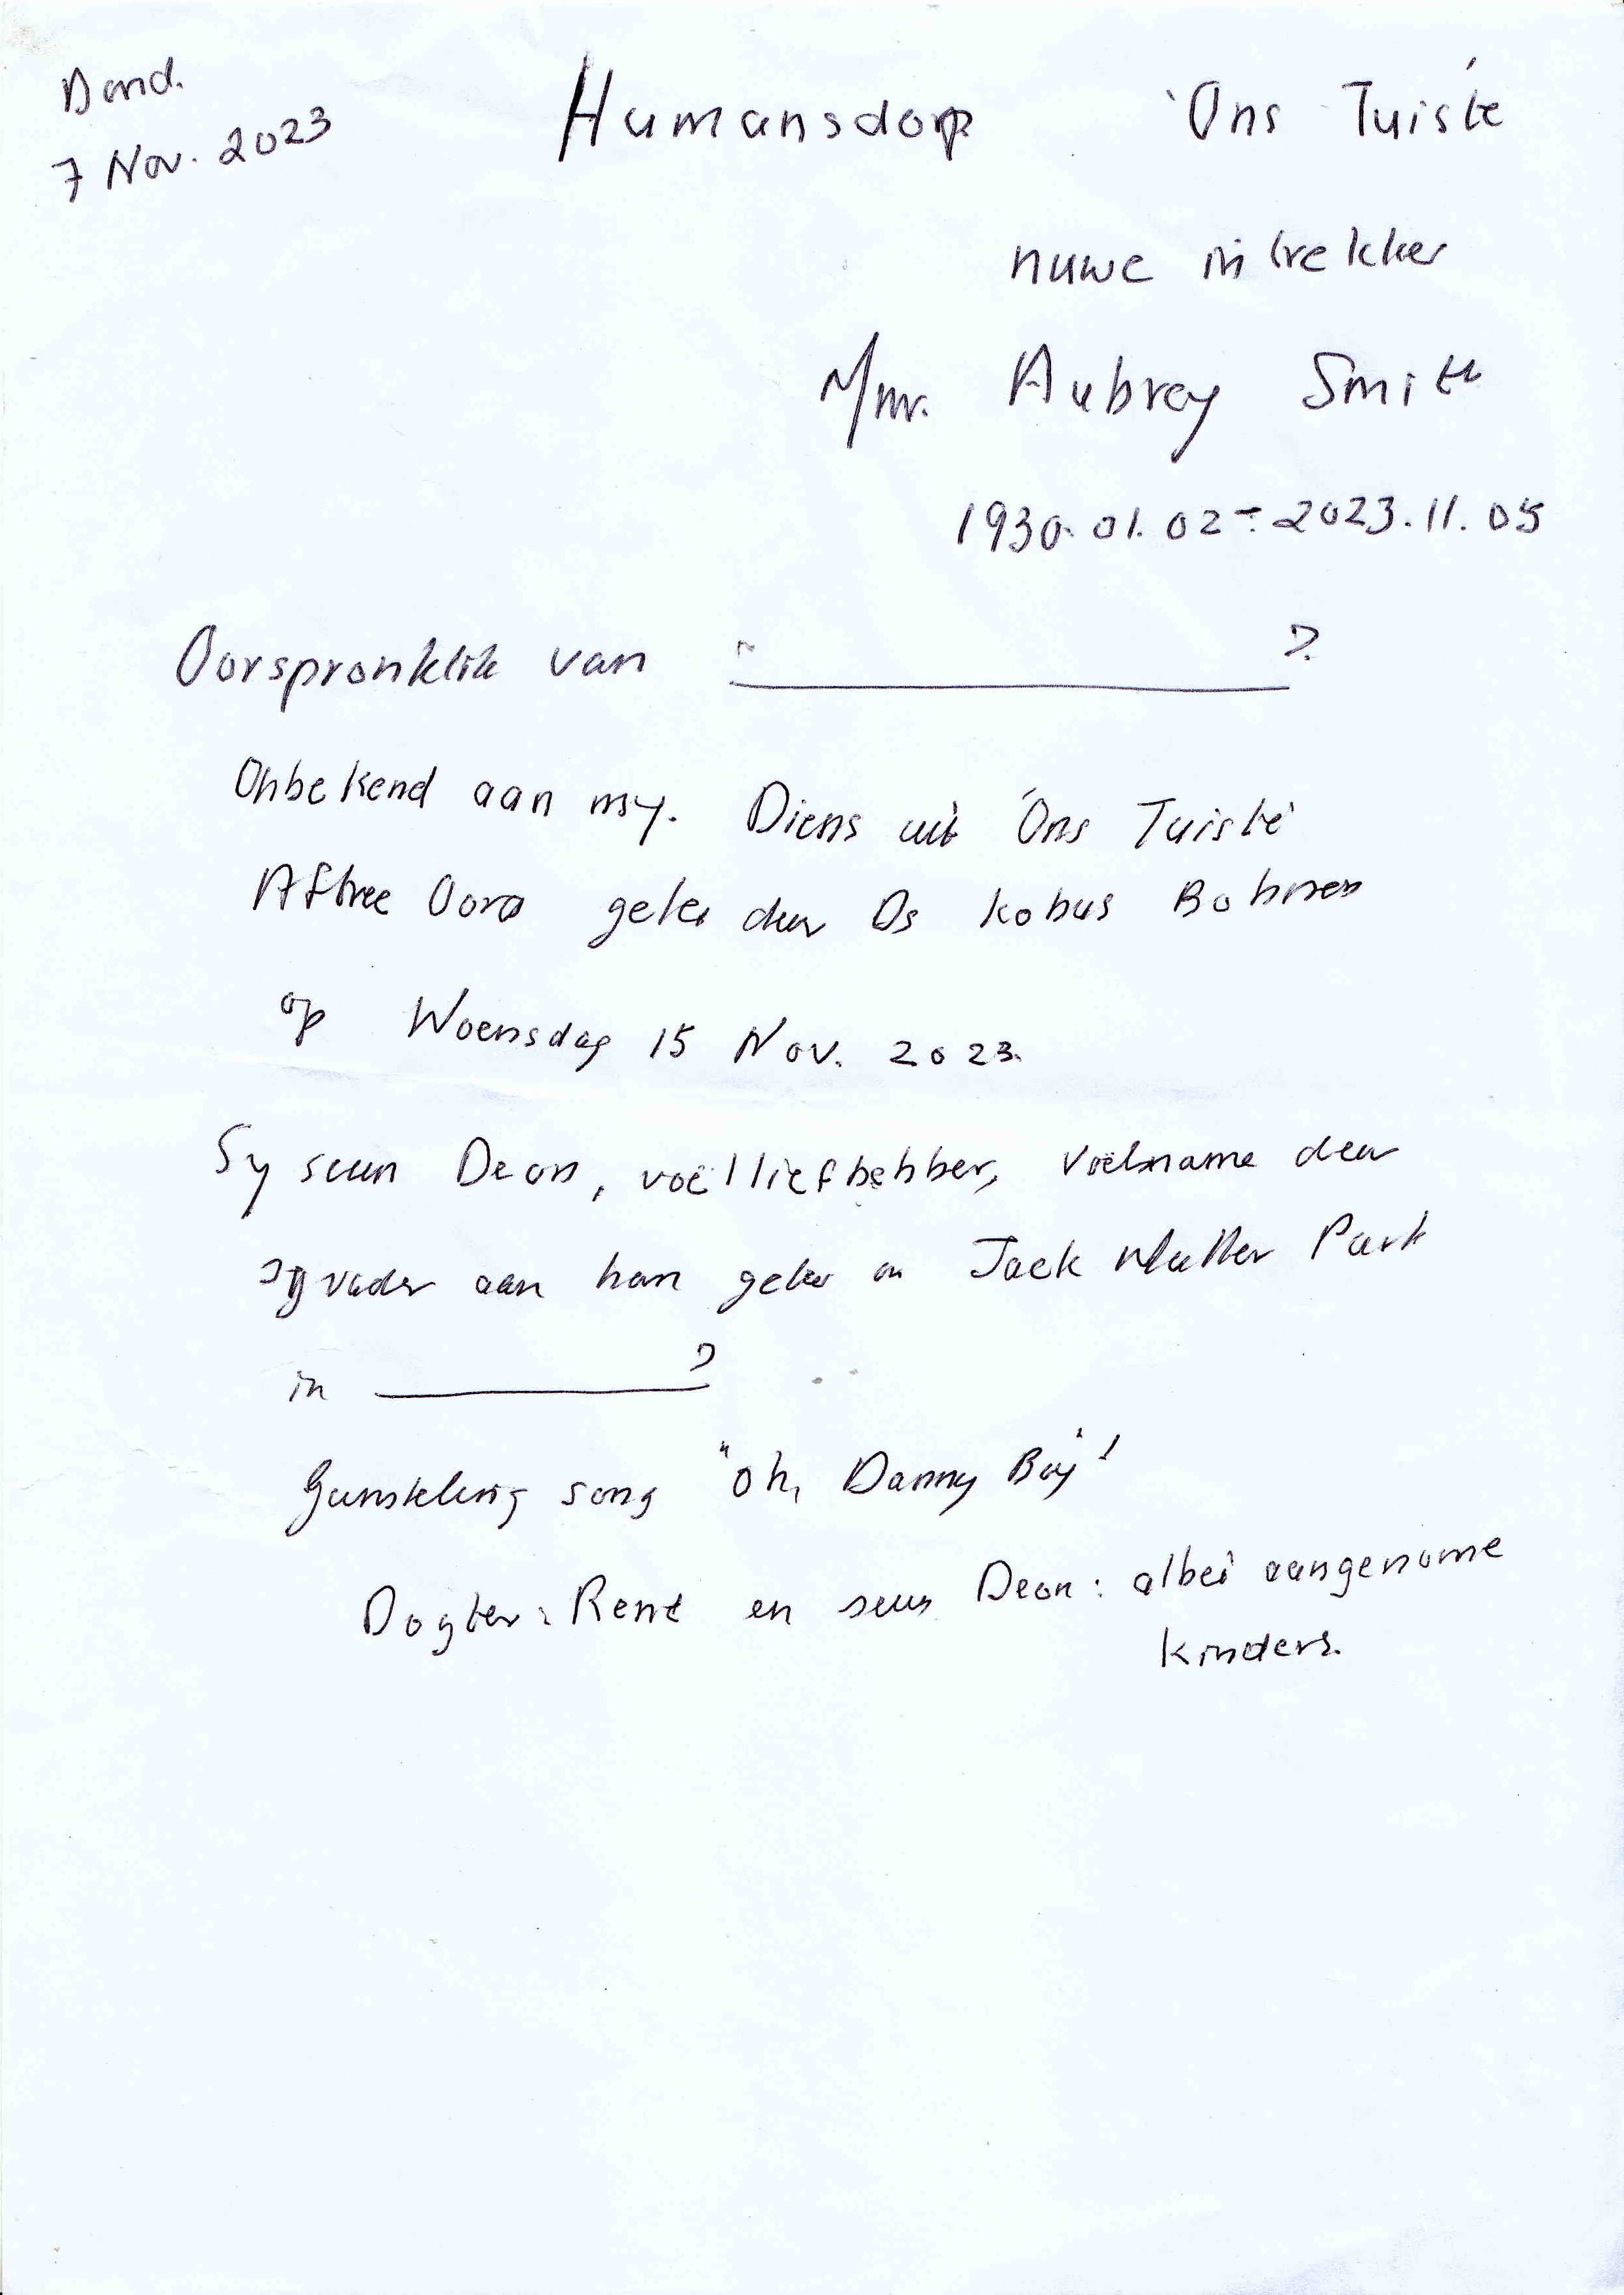 Dond.
7 Nov. 2023
Humansdorp 'Ons Tuiste'
nuwe intrekker
Mnr. Aubrey Smith
1930.01.02 - 2023.11.05
Oorspronklik van ?
Onbekend aan my. Diens uit 'Ons Tuiste'
Aftree Oord gelei deur Ds Kobus
op Woensdag 15 Nov. 2023.
Sy seun Deon, voëlliefhebber, voëlname deur
sy vader aan hom geleer in Jack Park
in ?
Gunsteling song "Oh, Danny Boy"!
Dogter: René en seun Deon: albei aangenome
kinders.